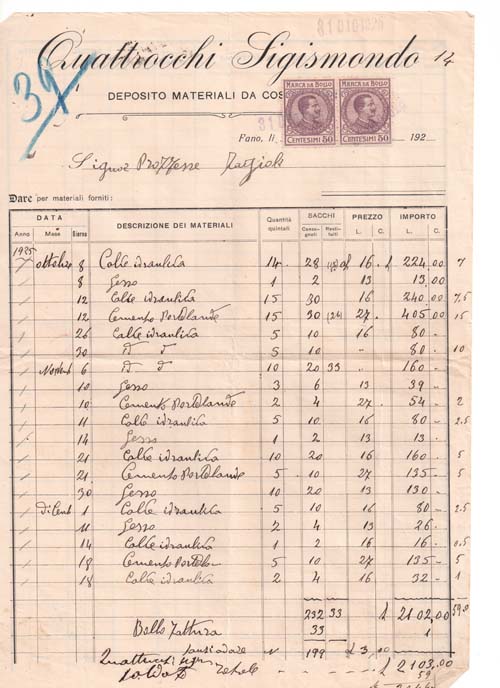 31 DIC 1925
Quattrocchi Sigismondo
14
39
DEPOSITO MATERIALI DA COS
MARCA DA BOLLO MARCA DA BOLLO
CENTESIMI 50 CENTESIMI 50
Fano, lì 192
Signor
Dare per materiali forniti:
DATA DESCRIZIONE DEI MATERIALI Quantità quintali SACCHI PREZZO IMPORTO
Anno Mese Giorno Consegnati Restituiti L. C. L. C.
1925 ottobre 8 Calce idraulica 14 28 16 £ 224.00 7
8 Gesso 1 2 13 13.00
12 Calce idraulica 15 30 16 240.00 7,5
12 Cemento Portland 15 30 (24) 27. 405.00 15
26 Calce idraulica 5 10 16 80 -
30 5 10 " 80. 10
6 10 20 33 " 160 -
10 Gesso 3 6 13 39
10 Cemento Portland 2 4 27 54 - 2
11 Calce idraulica 5 10 16 80 - 2.5
14 Gesso 1 2 13 13
21 Calce idraulica 10 20 16 160 5
21 Cemento Portland 5 10 27 135 5
30 Gesso 10 20 13 130 -
1 Calce idraulica 5 10 16 80 - 2.5
11 Gesso 2 4 13 26
14 Calce idraulica 1 2 16 16 - 0.5
18 Cemento 5 10 27 135 - 5
18 Calce idraulica 2 4 16 32 - 1
232 33 £ 2102.00
Bollo fattura 33 1
199 £ 3.00
Quattrocchi £ 2103.00
59